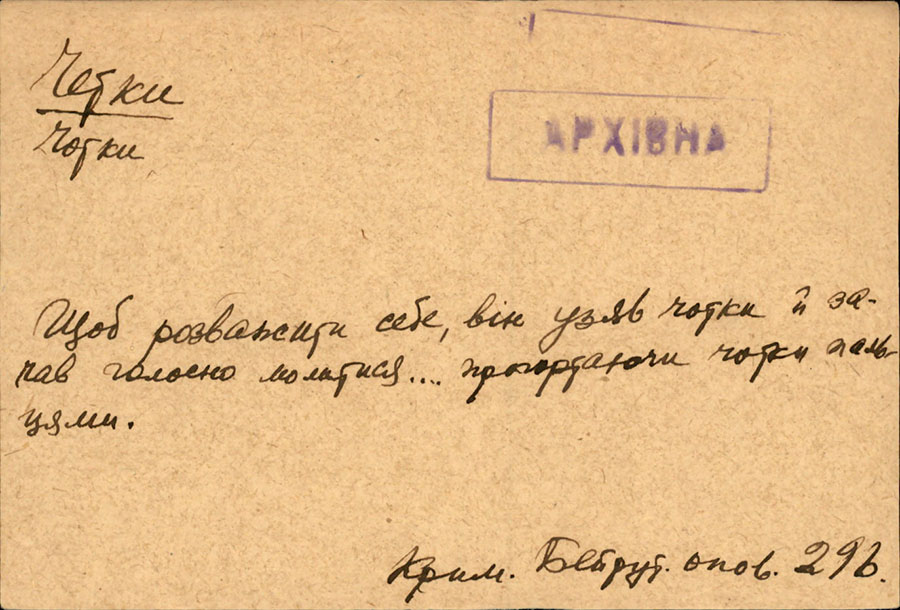 Четки
АРХІВНА
Чотки
Щоб розважити себе, він узяв чотки й за-
чав голосно молитися.... прогортаючи чотки паль-
цями.
Крим. Бейрут. опов. 296.